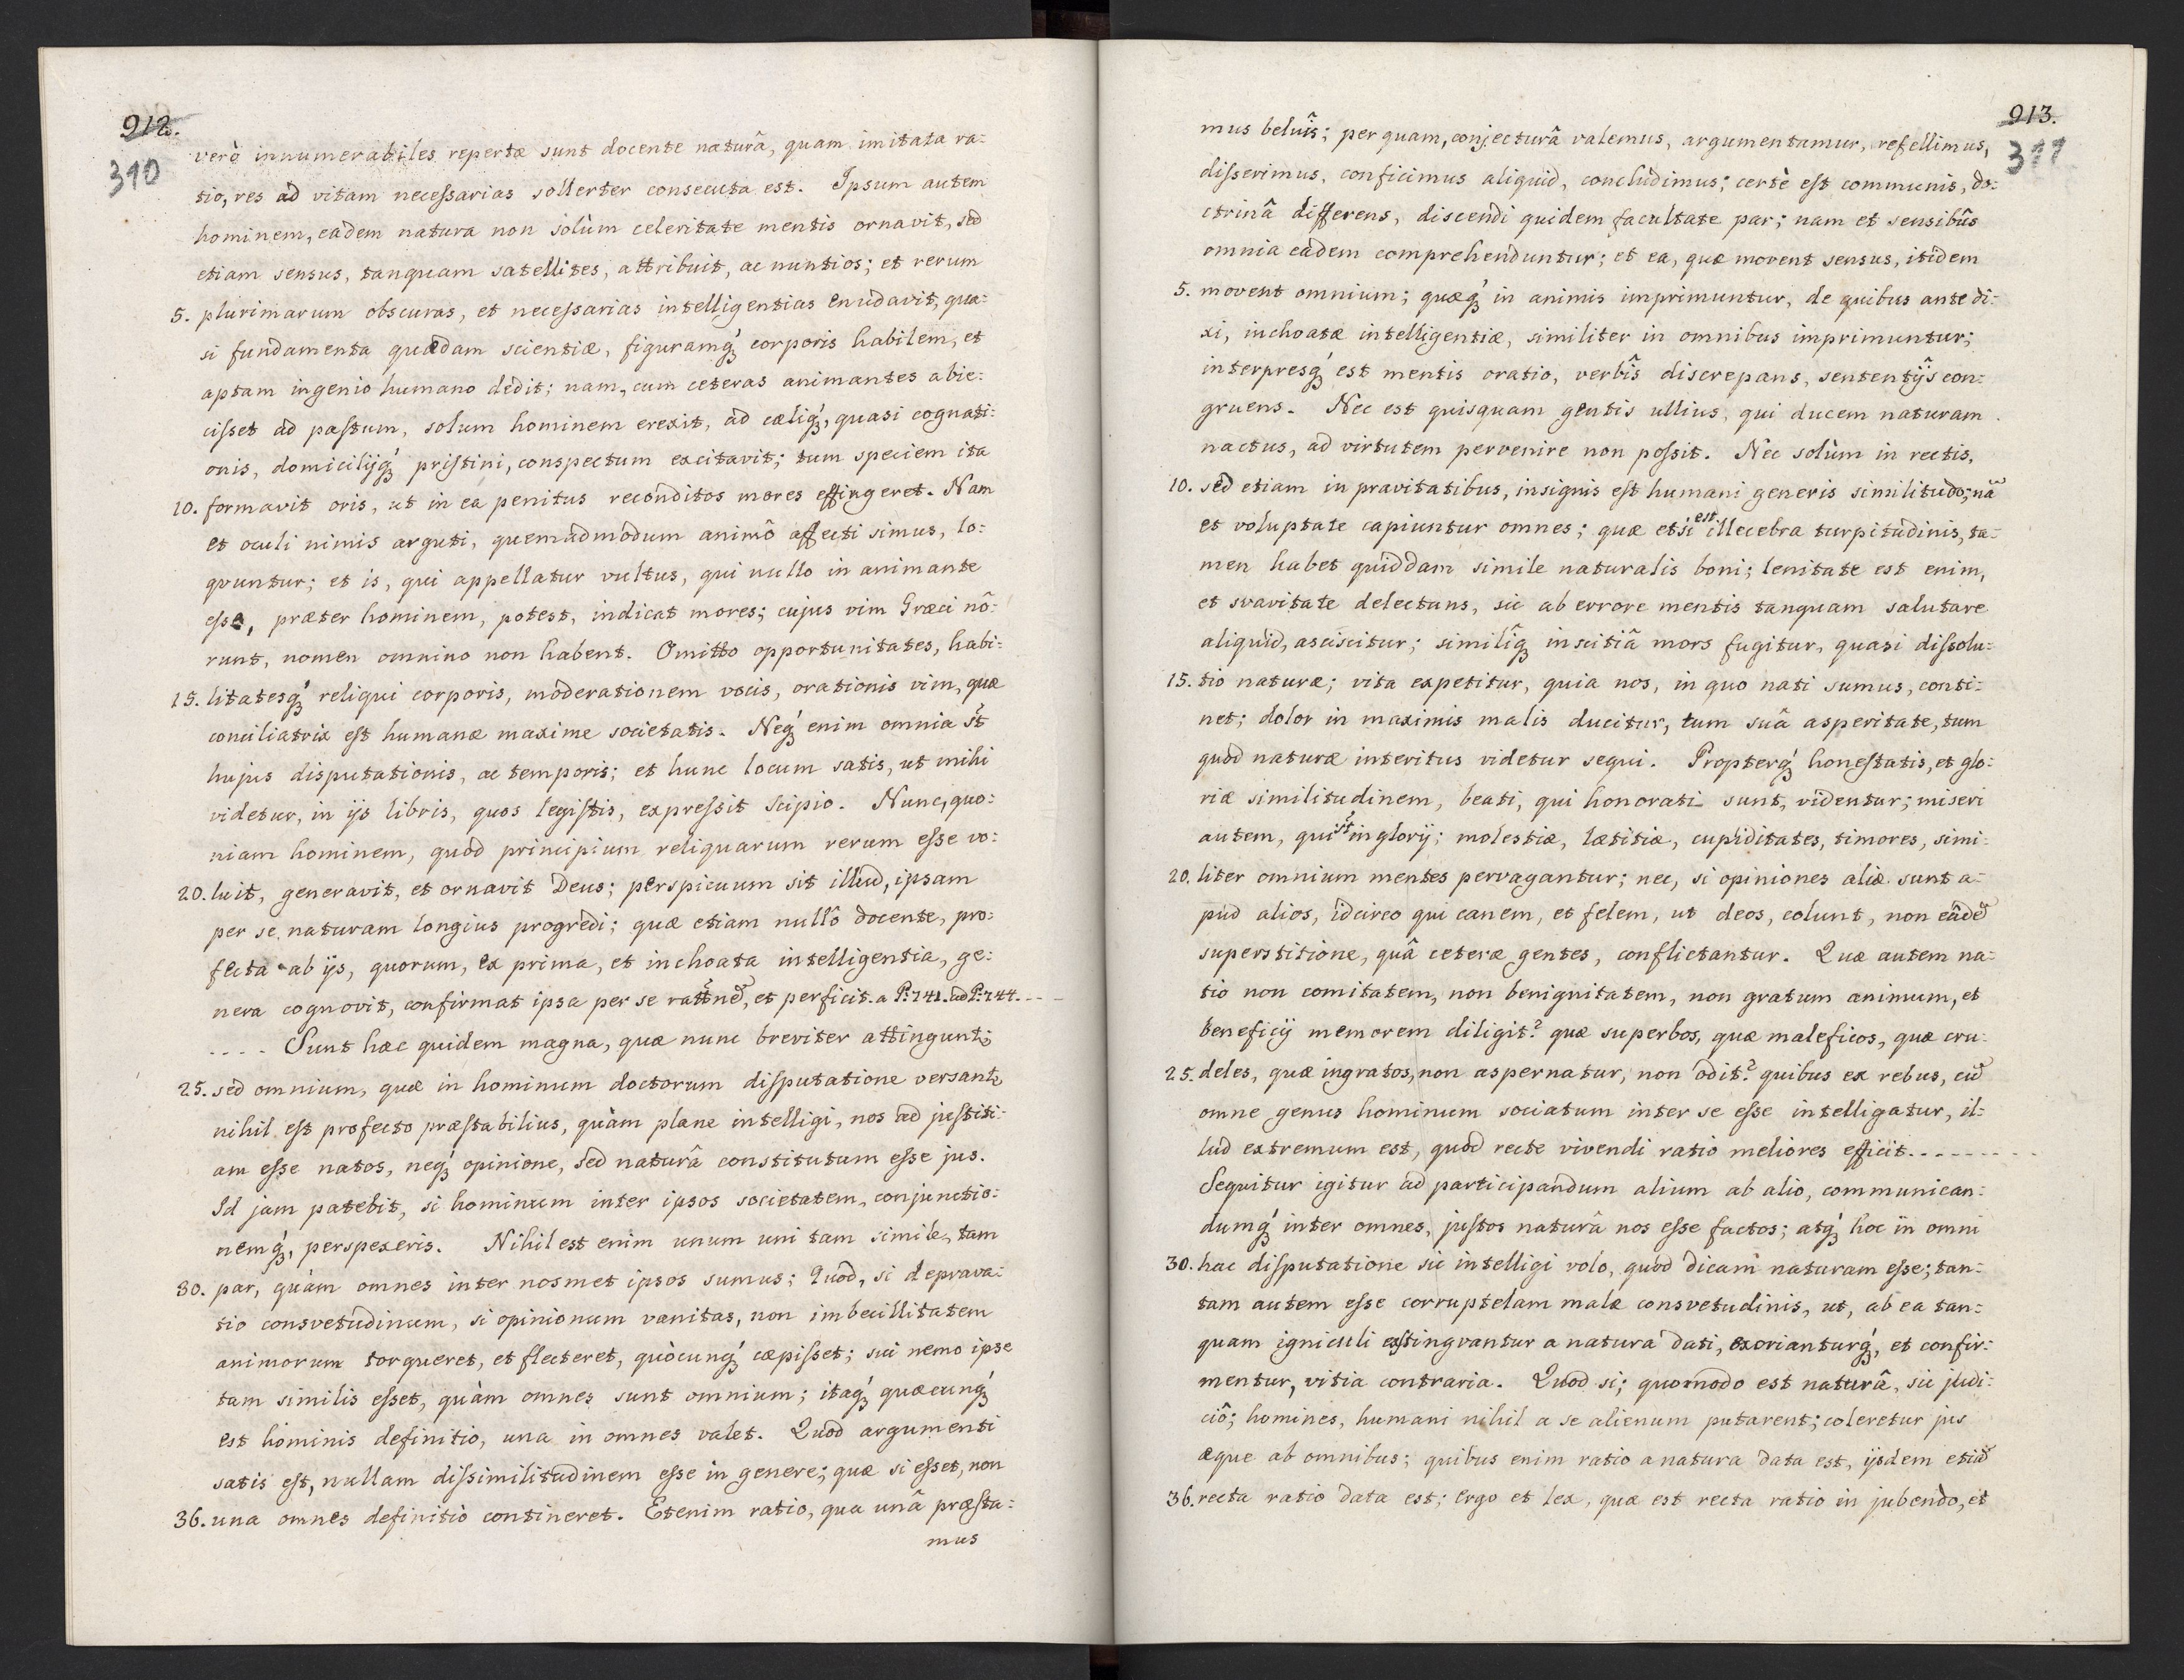 912.
310
verò innumerabiles repertæ sunt docente naturâ, quam imitata ra=
tio, res ad vitam necessarias sollerter consecuta est. Ipsum autem
hominem, eadem natura non solùm celeritate mentis ornavit, sed
etiam sensus, tanquam satellites, attribuit, ac nuntios; et rerum
5. plurimarum obscuras, et necessarias intelligentias enudavit, qua=
si fundamenta quædam scientiæ, figuramq́ꝫ corporis habilem, et
aptam ingenio humano dedit; nam, cum ceteras animantes abie=
cisset ad pastum, solum hominem erexit, ad cæliq́ꝫ, quasi cognati=
onis, domicilijq́ꝫ pristini, conspectum excitavit; tum speciem ita
10. formavit oris, ut in ea penitus reconditos mores effingeret. Nam
et oculi nimis arguti, quemadmodum animô affecti simus, lo=
qvuntur; et is, qui appellatur vultus, qui nullo in animante
esse, præter hominem, potest, indicat mores; cujus vim Græci nô=
runt, nomen omnino non habent. Omitto opportunitates, habi=
15. litatesq́ꝫ reliqui corporis, moderationem vocis, orationis vim, quæ
conciliatrix est humanæ maxime societatis. Neq́ꝫ enim omnia st̃
hujus disputationis, ac temporis; et hunc locum satis, ut mihi
videtur, in ijs libris, quos legistis, expressit Scipio. Nunc, quo=
niam hominem, quòd principium reliquarum rerum esse vo=
20. luit, generavit, et ornavit Deus; perspicuum sit illud, ipsam
per se naturam longius progredi; quæ etiam nullô docente, pro=
fecta ab ijs, quorum, ex prima, et inchoata intelligentia, ge=
nera cognovit, confirmat ipsa per se rattnẽ, et perficit. a P: 741. ad P: 744. - - -
- - - - Sunt hæc quidem magna, quæ nunc breviter attingunt;
25. sed omnium, quæ in hominum doctorum disputatione versantꝛ
nihil est profecto præstabilius, quàm plane intelligi, nos ad justiti=
am esse natos, neq́ꝫ opinione, sed naturâ constitutum esse jus.
Id jam patebit, si hominum inter ipsos societatem, conjunctio=
nemq́ꝫ, perspexeris. Nihil est enim unum uni tam simile, tam
30. par, quàm omnes inter nosmet ipsos sumus; Quod, si deprava=
tio consvetudinum, si opinionum vanitas, non imbecillitatem
animorum torqueret, et flecteret, quòcunq́ꝫ cæpisset; sui nemo ipse
tam similis esset, quàm omnes sunt omnium; itaq́ꝫ quæcunq́ꝫ
est hominis definitio, una in omnes valet. Quod argumenti
satis est, nullam dissimilitudinem esse in genere; quæ si esset, non
36. una omnes definitio contineret. Etenim ratio, qua unâ præsta=
mus
913.
311
mus beluîs; per quam, conjecturâ valemus, argumentamur, refellimus,
disserimus, conficimus aliquid, concludimus; certè est communis, do=
ctrinâ differens, discendi quidem facultate par; nam et sensibûs
omnia eadem comprehenduntur; et ea, quæ movent sensus, itidem
5. movent omnium; quæq́ꝫ in animis imprimuntur, de quibus ante di=
xi, inchoatæ intelligentiæ, similiter in omnibus imprimuntur;
interpresq́ꝫ est mentis oratio, verbîs discrepans, sententijs con=
gruens. Nec est quisquam gentis ullius, qui ducem naturam
nactus, ad virtutem pervenire non possit. Nec solùm in rectis,
10. sed etiam in pravitatibus, insignis est humani generis similitudo; nã
et voluptate capiuntur omnes; quæ etsi est illecebra turpitudinis, ta=
men habet quiddam simile naturalis boni; lenitate est enim,
et svavitate delectans, sic ab errore mentis tanquam salutare
aliquid, asciscitur; similiq́ꝫ inscitiâ mors fugitur, quasi dissolu=
15. tio naturæ; vita expetitur, quia nos, in quo nati sumus, conti=
net; dolor in maximis malis ducitur, tum suâ asperitate, tum
quòd naturæ interitus videtur sequi. Propterq́ꝫ honestatis, et glo=
riæ similitudinem, beati, qui honorati sunt, videntur; miseri
autem, qui st̃ inglorij; molestiæ, lætitiæ, cupiditates, timores, simi=
20. liter omnium mentes pervagantur; nec, si opiniones aliæ sunt a=
pud alios, idcirco qui canem, et felem, ut deos, colunt, non eâdẽ
superstitione, quâ ceteræ gentes, conflictantur. Quæ autem na=
tio non comitatem, non benignitatem, non gratum animum, et
beneficij memorem diligit? quæ superbos, quæ maleficos, quæ cru=
25. deles, quæ ingratos, non aspernatur, non odit? quibus ex rebus, cũ
omne genus hominum sociatum inter se esse intelligatur, il=
lud extremum est, quòd recte vivendi ratio meliores efficit. - - - - - - - -
Sequitur igitur ad participandum alium ab alio, communican=
dumq́ꝫ inter omnes, justos naturâ nos esse factos; atq́ꝫ hoc in omni
30. hac disputatione sic intelligi volo, quòd dicam naturam esse; tan=
tam autem esse corruptelam malæ consvetudinis, ut, ab ea tan=
quam igniculi exstingvantur a natura dati, exorianturq́ꝫ, et confir=
mentur, vitia contraria. Quod si; quomodo est naturâ, sic judi=
ciô; homines, humani nihil a se alienum putarent; coleretur jus
æque ab omnibus; quibus enim ratio a natura data est, ijsdem etiã
36. recta ratio data est; ergo et lex, quæ est recta ratio in jubendo, et